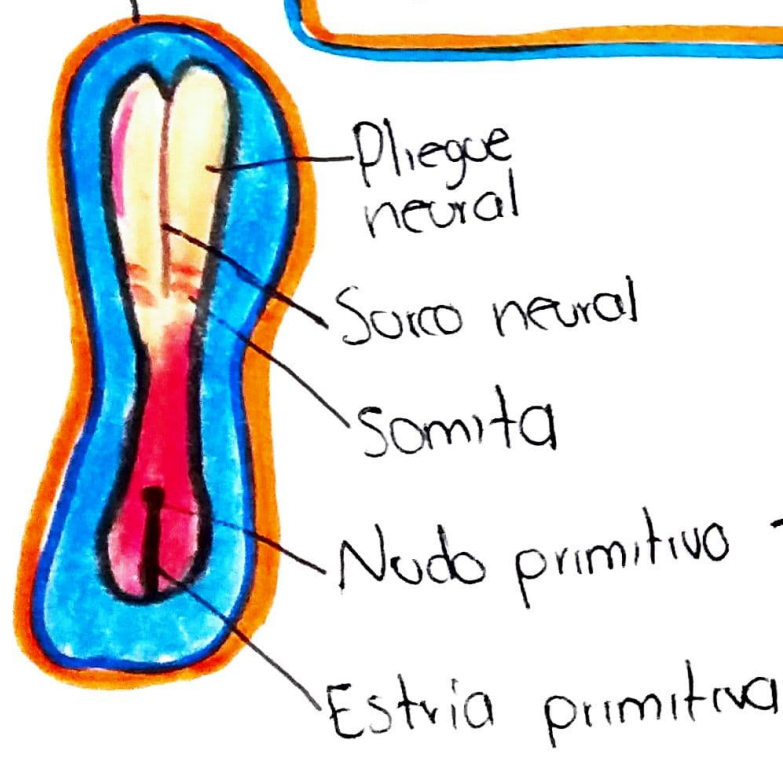 Pliegue
neural
Surco neural
Somita
Nudo primitivo -
Estría primitiva